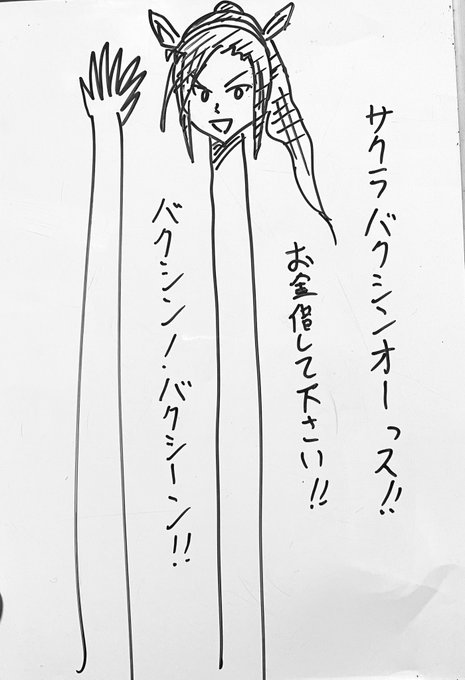 サクラバクシンオーっス!!
お金借して下さい!!
バクシン!・バクシーン!!